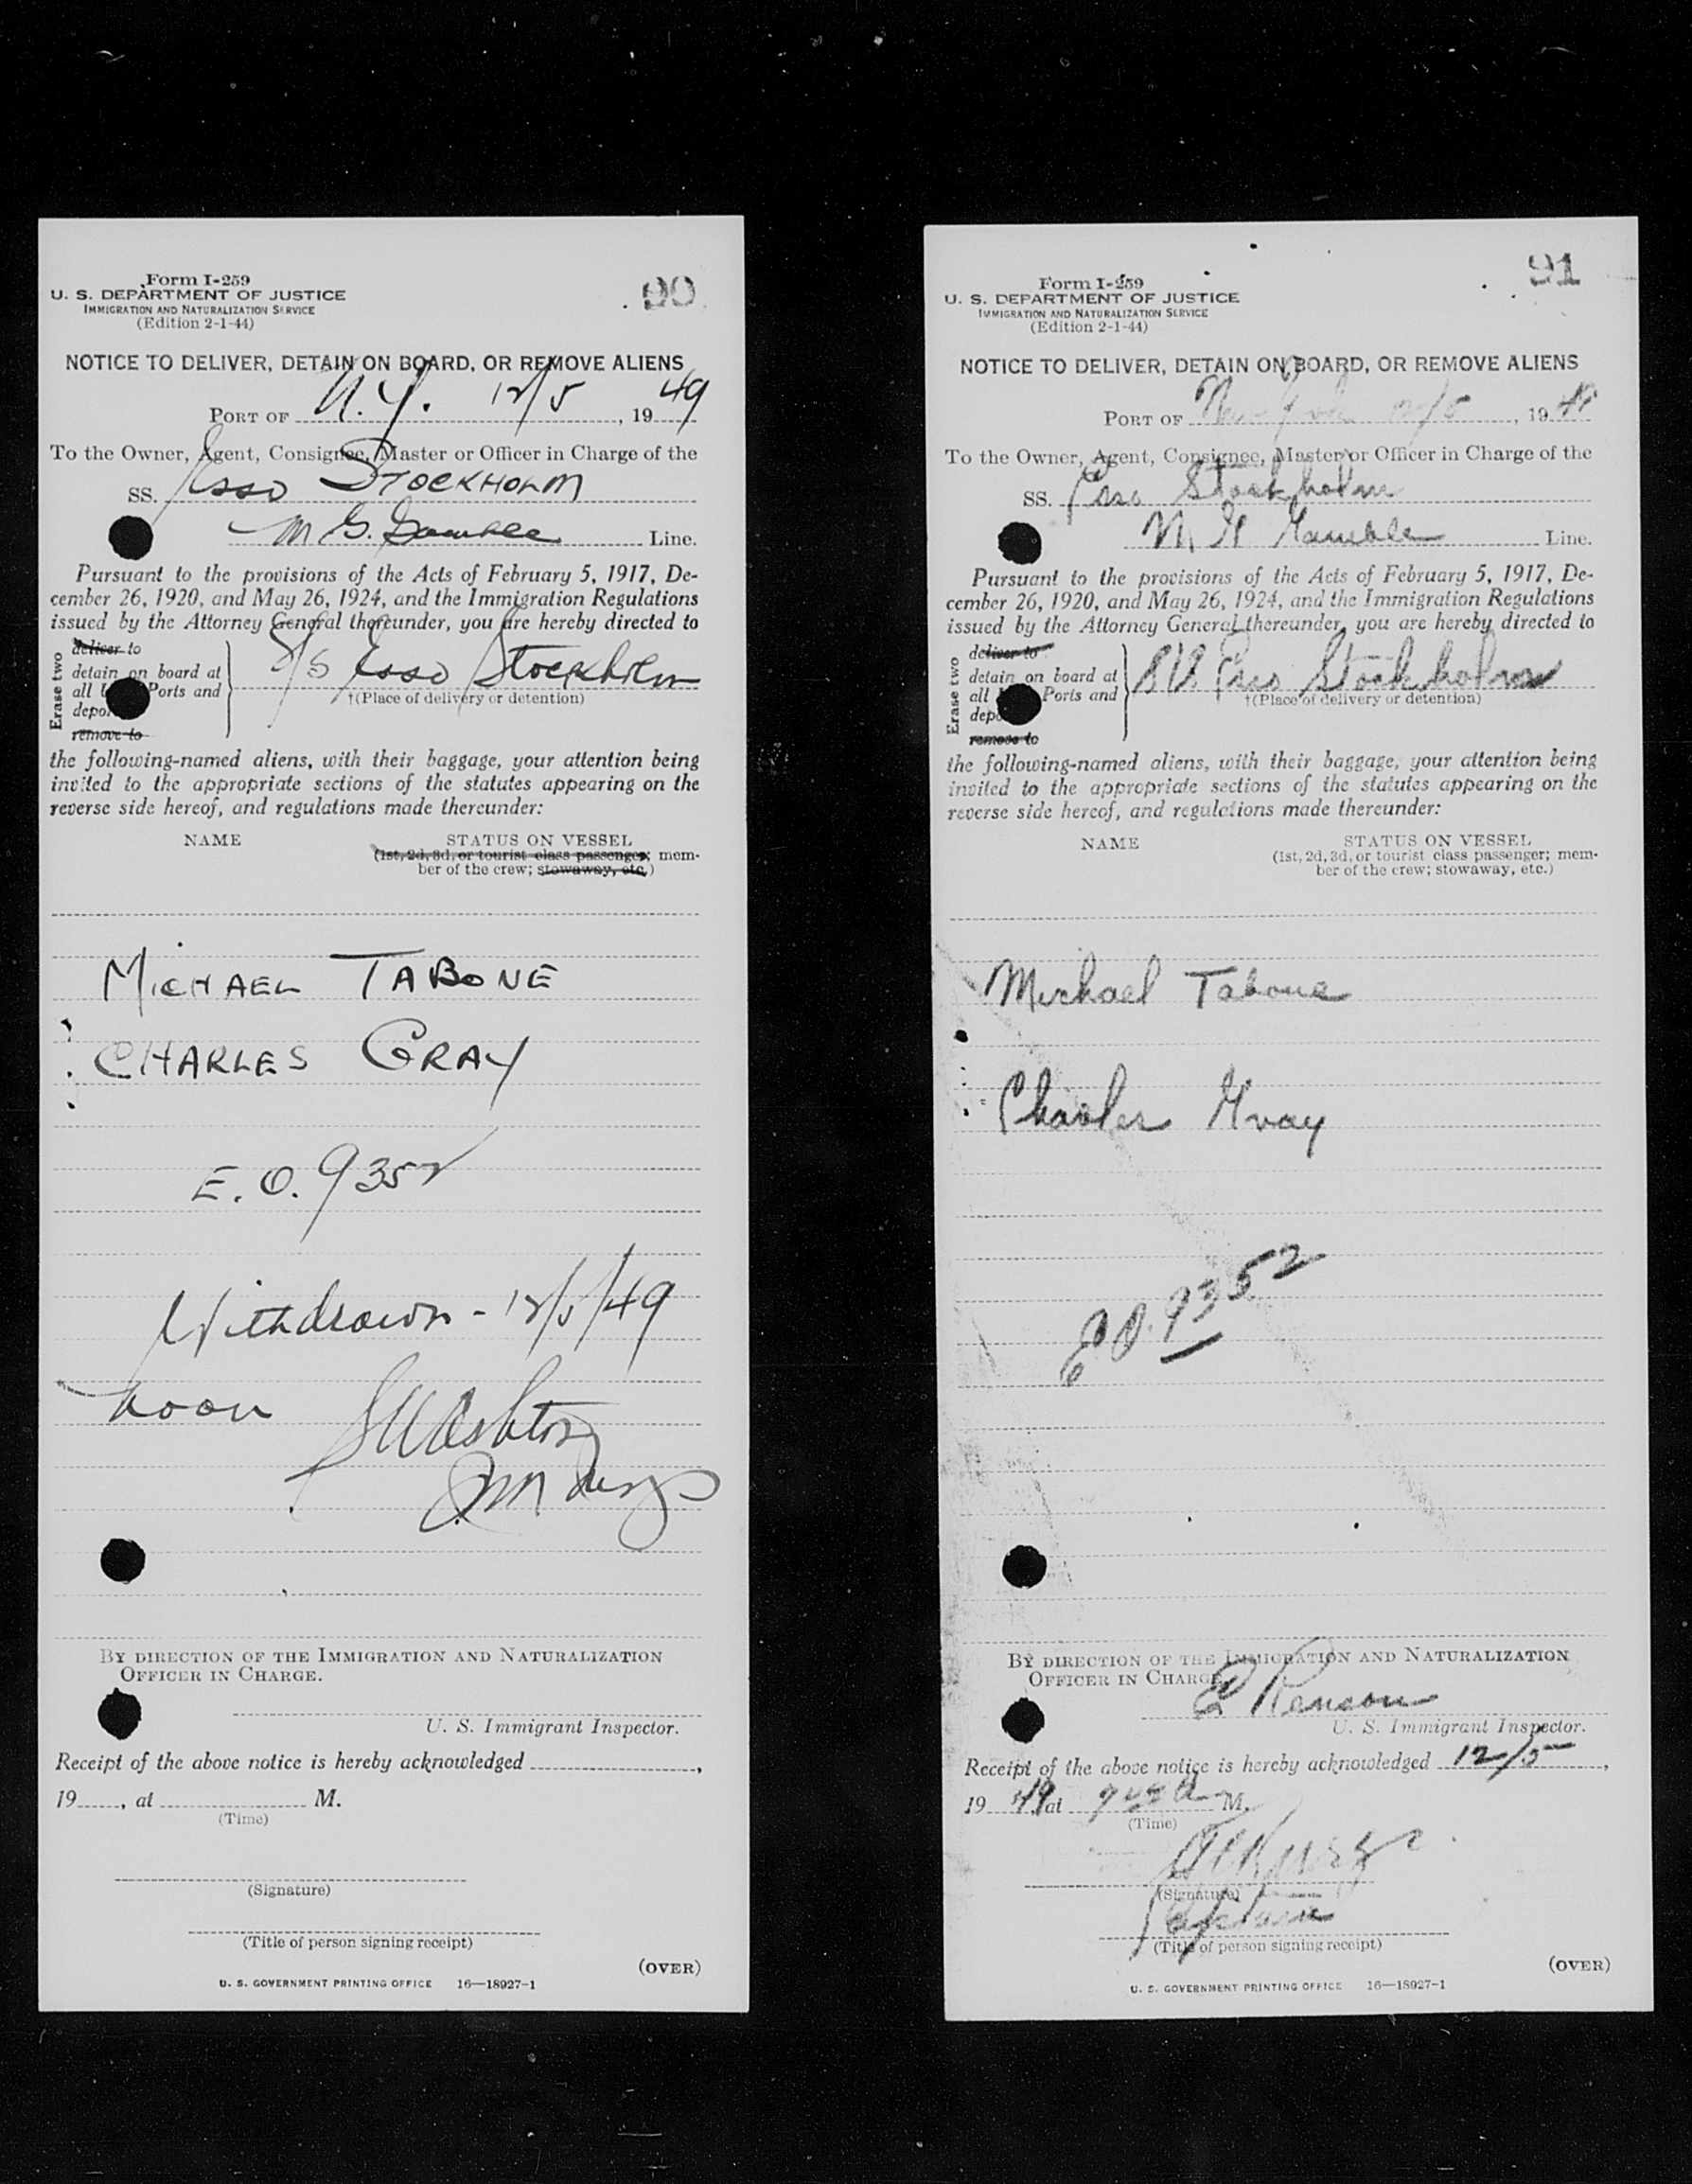 Form I-259
U. S. DEPARTMENT OF JUSTICE
IMMIGRATION AND NATURALIZATION SERVICE
(Edition 2-1-44)
90
NOTICE TO DELIVER, DETAIN ON BOARD, OR REMOVE ALIENS
PORT OF N.Y. 12/5, 1949
To the Owner, Agent, Consignee, Master or Officer in Charge of the
SS. Esso STOCKHOLM
M G. Gamble Line.
Pursuant to the provisions of the Acts of February 5, 1917, De-
cember 26, 1920, and May 26, 1924, and the Immigration Regulations
issued by the Attorney General thereunder, you are hereby directed to
Erase two
deliver to
detain on board at
all Ports and
depo
remove to
S/S Esso Stockholm
†(Place of delivery or detention)
the following-named aliens, with their baggage, your attention being
invited to the appropriate sections of the statutes appearing on the
reverse side hereof, and regulations made thereunder:
NAME STATUS ON VESSEL
(1st, 2d, 3d, or tourist class passenger; mem-
ber of the crew; stowaway, etc.)
MICHAEL TABONE
CHARLES GRAY
E. O. 9352
Withdrawn - 12/5/49
noon
BY DIRECTION OF THE IMMIGRATION AND NATURALIZATION
OFFICER IN CHARGE.
U. S. Immigrant Inspector.
Receipt of the above notice is hereby acknowledged ,
19 , at M.
(Time)
(Signature)
(Title of person signing receipt)
(OVER)
U. S. GOVERNMENT PRINTING OFFICE 16—18927-1
Form I-259
U. S. DEPARTMENT OF JUSTICE
IMMIGRATION AND NATURALIZATION SERVICE
(Edition 2-1-44)
91
NOTICE TO DELIVER, DETAIN ON BOARD, OR REMOVE ALIENS
PORT OF New York 12/5, 1949
To the Owner, Agent, Consignee, Master or Officer in Charge of the
SS. Esso Stockholm
M G Gamble Line.
Pursuant to the provisions of the Acts of February 5, 1917, De-
cember 26, 1920, and May 26, 1924, and the Immigration Regulations
issued by the Attorney General thereunder, you are hereby directed to
Erase two
deliver to
detain on board at
all Ports and
depo
remove to
SS. Esso Stockholm
†(Place of delivery or detention)
the following-named aliens, with their baggage, your attention being
invited to the appropriate sections of the statutes appearing on the
reverse side hereof, and regulations made thereunder:
NAME STATUS ON VESSEL
(1st, 2d, 3d, or tourist class passenger; mem-
ber of the crew; stowaway, etc.)
Michael Tabone
Charles Gray
E O. 9352
BY DIRECTION OF THE IMMIGRATION AND NATURALIZATION
OFFICER IN CHARGE.
U. S. Immigrant Inspector.
Receipt of the above notice is hereby acknowledged 12/5,
1949 at 9 45 A M.
(Time)
(Signature)
Captain
(Title of person signing receipt)
(OVER)
U. S. GOVERNMENT PRINTING OFFICE 16—18927-1